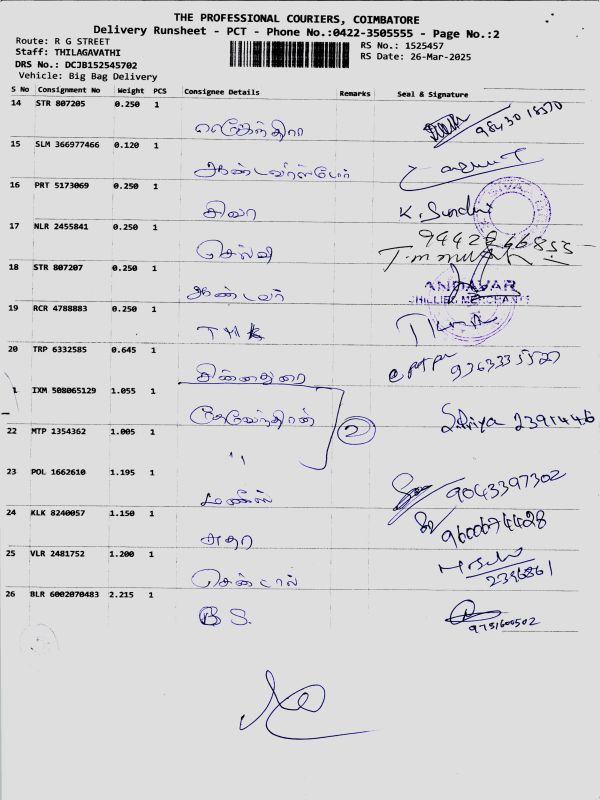 THE PROFESSIONAL COURIERS, COIMBATORE
Delivery Runsheet - PCT - Phone No.:0422-3505555 - Page No.:2
Route: R G STREET
RS No.: 1525457
Staff: THILAGAVATHI
RS Date: 26-Mar-2025
DRS No.: DCJB152545702
Vehicle: Big Bag Delivery
S No Consignment No Weight PCS Consignee Details Remarks Seal & Signature
14 STR 807205 0.250 1
15 SLM 366977466 0.120 1
16 PRT 5173069 0.250 1 சிவா K. Sundar
17 NLR 2455841 0.250 1 செல்வி
18 STR 807207 0.250 1 ஆண்டவர்
ANDAVAR
CHILLIES MERCHANTS
19 RCR 4788883 0.250 1 TMK
20 TRP 6332585 0.645 1 சின்னதுரை
1 IXM 508065129 1.055 1 தேவேந்திரன் 2391446
22 MTP 1354362 1.005 1 " 2
23 POL 1662610 1.195 1 9043397302
24 KLK 8240057 1.150 1 9600674428
25 VLR 2481752 1.200 1 2396861
26 BLR 6002070483 2.215 1 B S. 9751600502